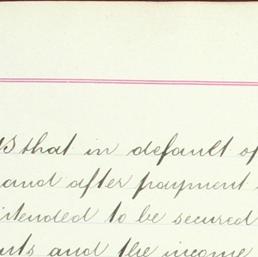 that in default of
and after payment
intended to be secured
and the income